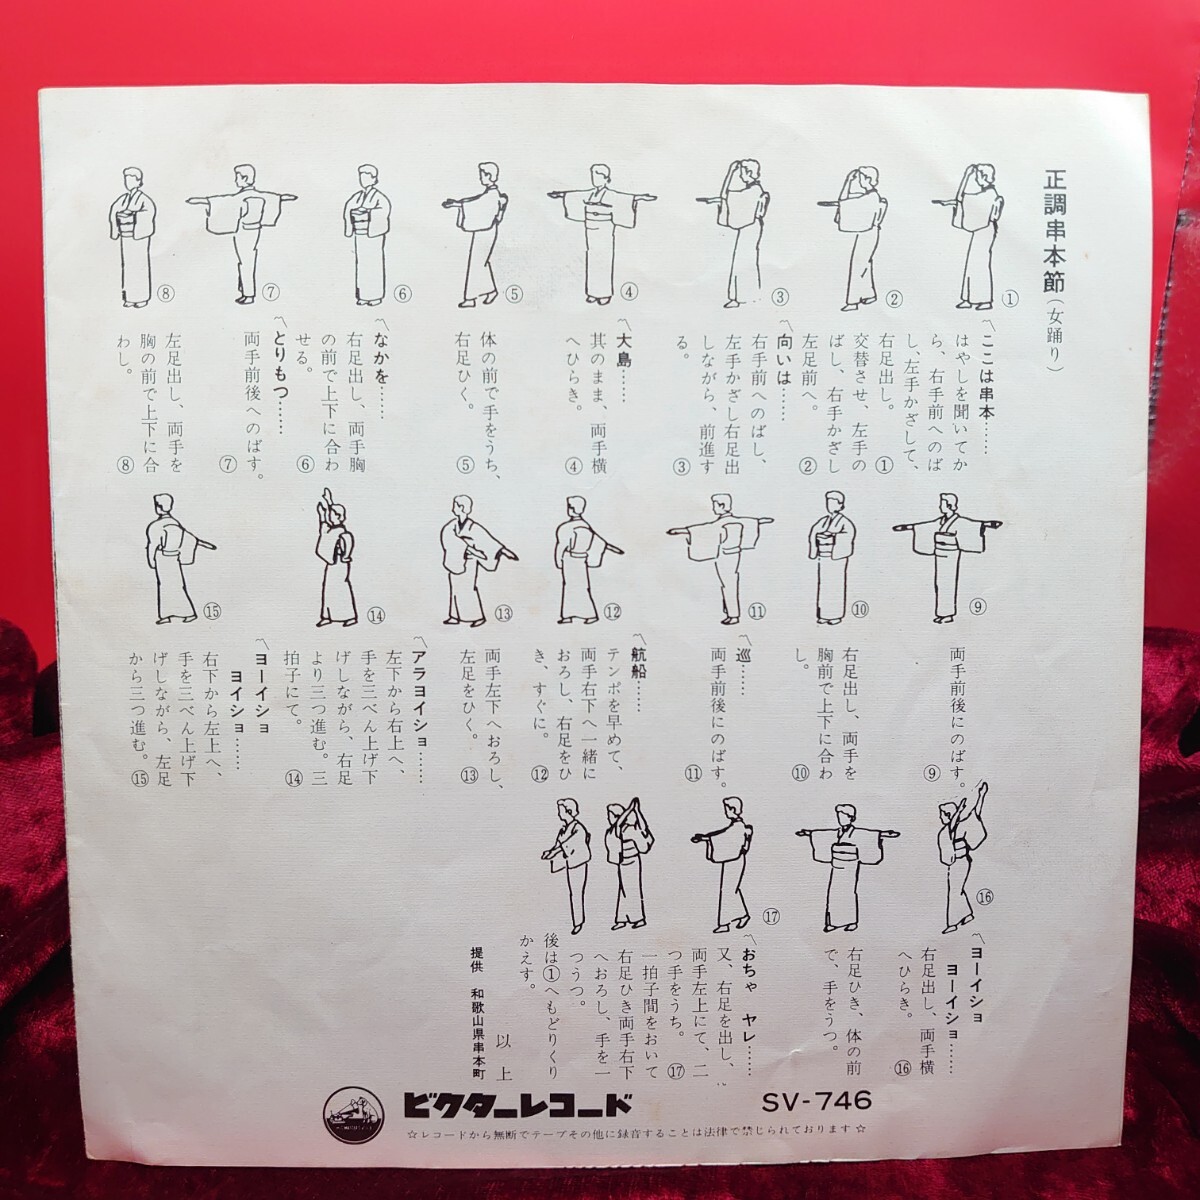 正調串本節(女踊り)
①
②
③
④
⑤
⑥
⑦
⑧
〽ここは串本……
はやしを聞いてか
ら、右手前へのば
し、左手かざして、
右足出し。 ①
交替させ、左手の
ばし、右手かざし
左足前へ。 ②
〽向いは……
右手前へのばし、
左手かざし右足出
しながら、前進す
る。 ③
〽大島……
其のまま、両手横
へひらき。 ④
体の前で手をうち、
右足ひく。 ⑤
〽なかを……
右足出し、両手胸
の前で上下に合わ
せる。 ⑥
〽とりもつ……
両手前後へのばす。
⑦
左足出し、両手を
胸の前で上下に合
わし。 ⑧
⑨
⑩
⑪
⑫
⑬
⑭
⑮
両手前後にのばす。
⑨
右足出し、両手を
胸前で上下に合わ
し。 ⑩
〽巡……
両手前後にのばす。
⑪
〽航船……
テンポを早めて、
両手右下へ一緒に
おろし、右足をひ
き、すぐに。 ⑫
両手左下へおろし、
左足をひく。 ⑬
〽アラヨイショ……
左下から右上へ、
手を三べん上げ下
げしながら、右足
より三つ進む。三
拍子にて。 ⑭
〽ヨーイショ
ヨイショ……
右下から左上へ、
手を三べん上げ下
げしながら、左足
から三つ進む。 ⑮
⑯
⑰
〽ヨーイショ
ヨーイショ……
右足出し、両手横
へひらき。 ⑯
右足ひき、体の前
で、手をうつ。
〽おちゃ ヤレ……
又、右足を出し、
両手左上にて、二
つ手をうち。 ⑰
一拍子間をおいて
右足ひき両手右下
へおろし、手を一
つうつ。
後は①へもどりくり
かえす。
以上
提供 和歌山県串本町
ビクターレコード
SV-746
☆レコードから無断でテープその他に録音することは法律で禁じられております☆